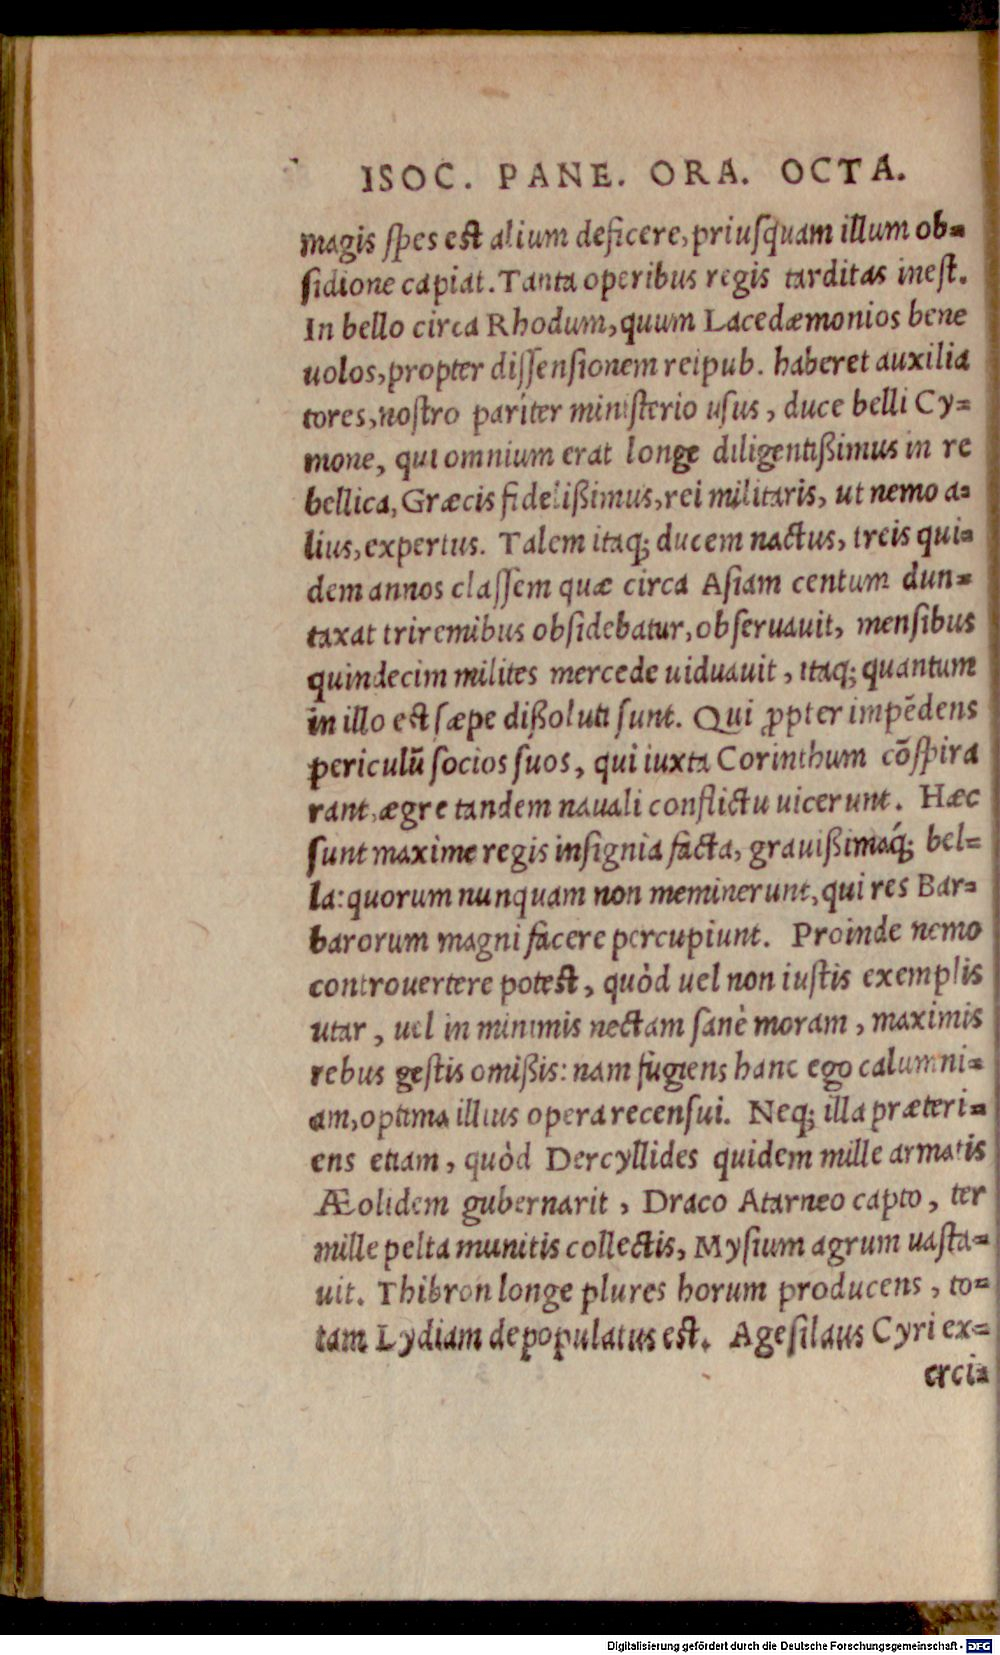 ISOC. PANE. ORA. OCTA.
magis ſpes est alium deficere, priuſquam illum ob-
ſidione capiat. Tanta operibus regis tarditas ineſt.
In bello circa Rhodum, quum Lacedæmonios bene
uolos, propter diſſenſionem reipub. haberet auxilia
tores, noſtro paríter miniſterio uſus, duce belli Cy-
mone, qui omnium erat longe diligentißimus in re
bellica, Græcis fidelißimus, rei militaris, ut nemo a-
lius, expertus. Talem itaq; ducem nactus, treis qui-
dem annos claſſem quæ circa Aſiam centum dun-
taxat triremibus obſidebatur, obſeruauit, menſibus
quindecim milites mercede uiduauit, itaq; quantum
in illo est ſæpe dißoluti ſunt. Qui ꝓpter impēdens
periculū ſocios ſuos, qui iuxta Corinthum cōſpira
rant, ægre tandem nauali conflictu uicerunt. Hæc
ſunt maxime regis inſignia facta, grauißimaq́; bel-
la: quorum nunquam non meminerunt, qui res Bar-
barorum magni facere percupiunt. Proinde nemo
controuertere potest, quòd uel non iuſtis exemplis
utar, uel in minimis nectam ſanè moram, maximis
rebus geſtis omißis: nam fugiens hanc ego calumni-
am, optima illius opera recenſui. Neq; illa præteri-
ens etiam, quòd Dercyllides quidem mille armatis
Æolidem gubernarit, Draco Atarneo capto, ter
mille pelta munitis collectis, Myſium agrum uaſta-
uit. Thibron longe plures horum producens, to-
tam Lydiam depopulatus est. Ageſilaus Cyri ex-
erci-
Digitalisierung gefördert durch die Deutsche Forschungsgemeinschaft - DFG